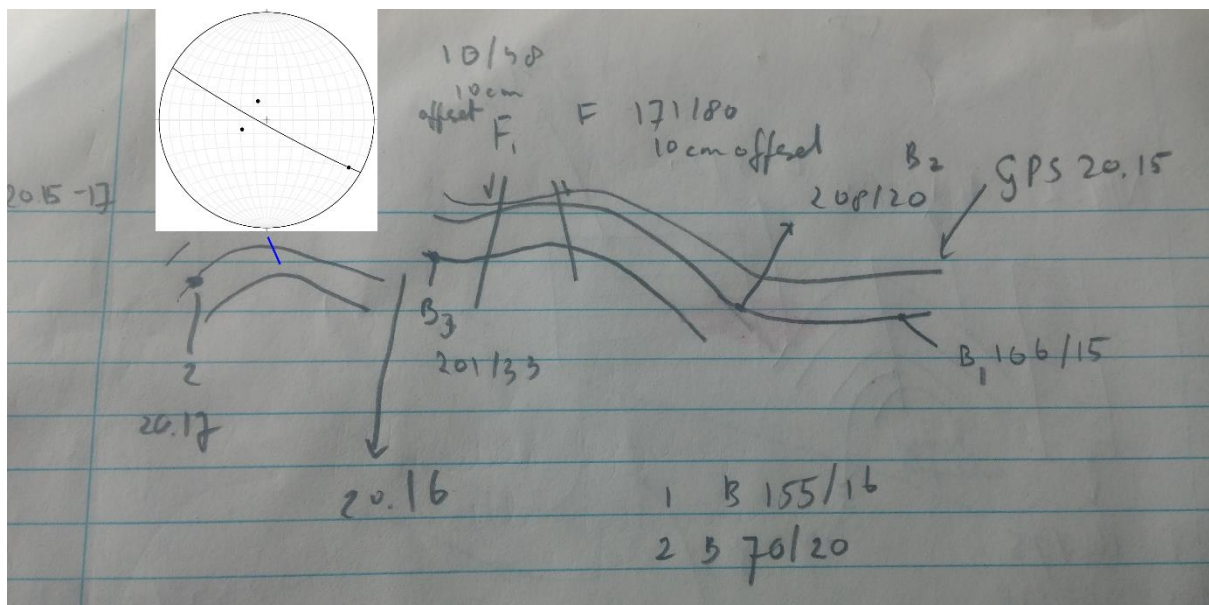 10/58
10cm
offset
F₁
F 171/80
10 cm offset
B₂
208/20
GPS 20.15
20.15-17
B₃
201/33
B₁ 166/15
2
20.17
20.16
1 B 155/16
2 B 70/20